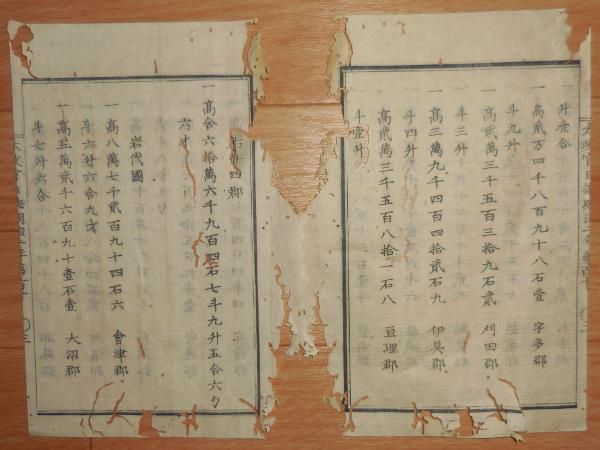 升壹合
一 高貳万四千八百九十八石壹 宇多郡
斗九升
一 高貳萬三千五百三拾九石貳 刈田郡
斗三升
一 高三萬九千四百四拾貳石九 伊具郡
斗四升
高貳萬三千五百八拾一石八 亘理郡
斗壹升
四郡
一 高合六拾萬六千九百四石七斗九升五合六勺
六才
岩代國
一 高八萬七千貳百九十四石六 會津郡
斗六升六合九勺
一 高五萬貳千六百九十壹石壹 大沼郡
斗七升六合